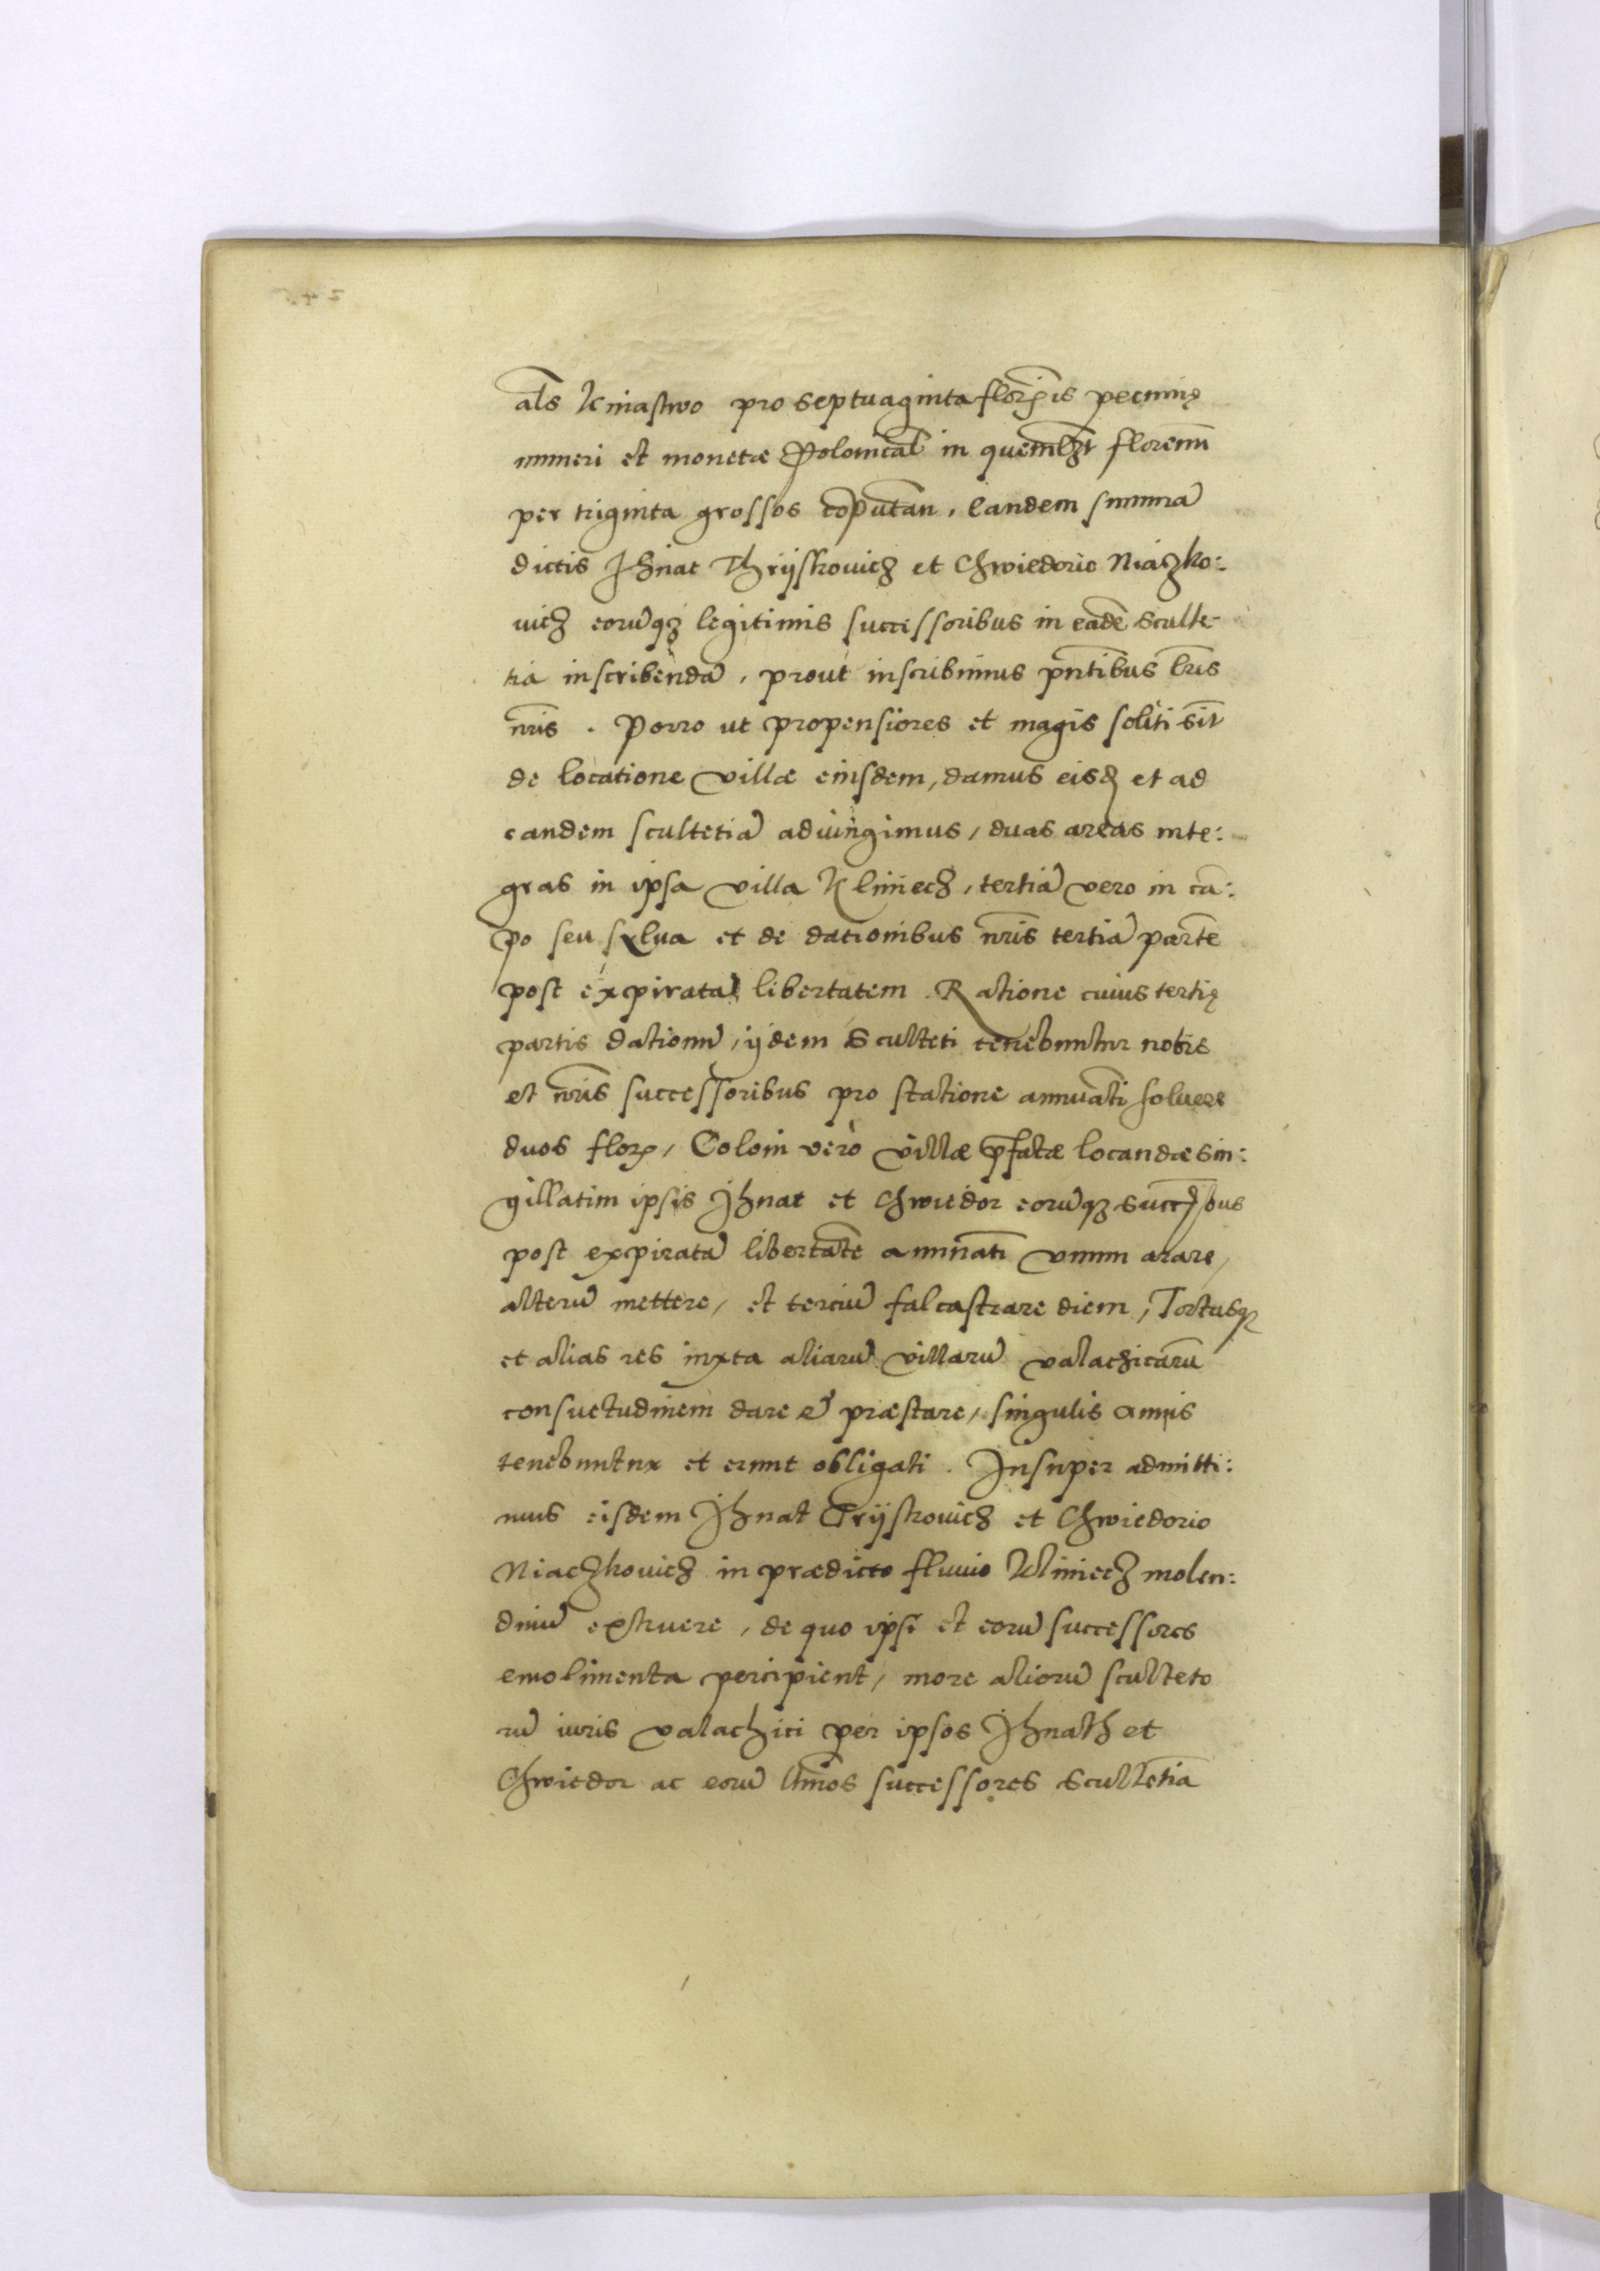 al̄s Kniastwo pro septuaginta florenis pecunię
numeri et monetæ Polonical̄ in quemlꝫt florenū
per triginta grossos cōputan̄, Eandem summā
dictis Jhnat Thrijskowicz et Chwiedorio Niaczko:
uicz eorūqꝫ legitimis successoribus in eadē sculte-
tia inscribendā, prout inscribimus pn̄tibus lr̄is
nr̄is. Porro ut propensiores et magis soliti sīt
de locatione villæ eiusdem, damus eisd et ad
eandem scultetiā adiungimus, duas areas inte:
gras in ipsa villa Klimecz, tertiā vero in cā:
po seu sylua et de dationibus nr̄is tertiā partē
post expiratā libertatem. Ratione cuius tertię
partis dationū, ijdem Sculteti tenebuntur nobis
et nr̄is successoribus pro statione annuati̅ soluere
duos flor, Coloni verò villæ p̄fatæ locandæ sin:
gillatim ipsis Jhnat et Chwiedor eorūqꝫ succ̄ssbus
post expiratā libertatē annuati̅ vnum arare,
alterū mettere, et terciū falcastrare diem, Tortasqꝫ
et alias res iuxta aliarū villarū valachicarū
consuetudinem dare & præstare, singulis annis
tenebuntur et erunt obligati. Insuper admitti:
mus eisdem Jhnat Trijskowicz et Chwiedorio
Niaczkouicz in prædicto fluuio Klimecz molen:
dinū exstruere, de quo ipsi et eorū successores
emolimenta percipient, more aliorū sculteto
rū iuris valachici per ipsos Jhnath et
Chwiedor ac eorū lt̄imos successores scultetiā